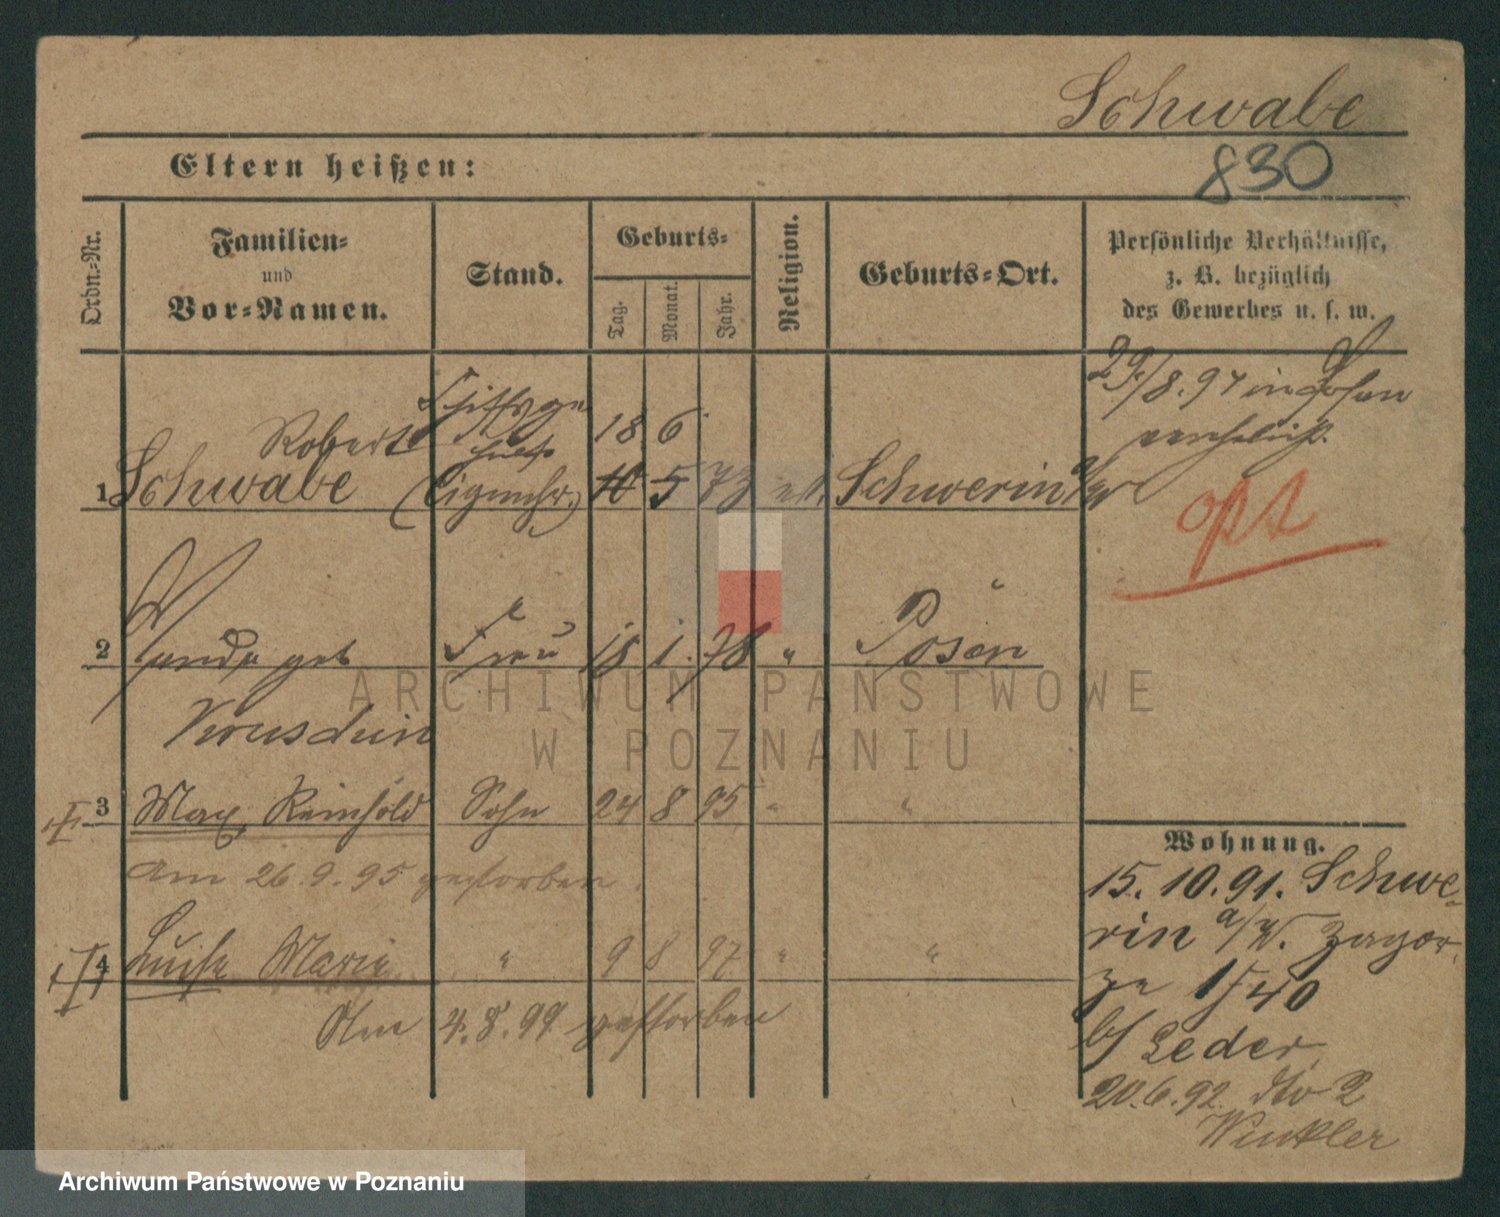 Schwabe
830
Eltern heißen:
Ordn.=Nr.
Familien=
und
Vor=Namen.
Stand.
Geburts=
Tag.
Monat.
Jahr.
Religion.
Geburts=Ort.
Persönliche Verhältnisse,
z. B. bezüglich
des Gewerbes u. s. w.
29/8. 94 in Posen
verehelicht.
opt
Robert 18 6
1 Schwabe 10 5 73 Schwerin a/W
2 Wanda geb Frau 18 1. 78 " Posen
3 Max Reinhold Sohn 24 8 95 " "
am 26.9.95 gestorben.
4 Luise Marie " 9 8 97 " "
Am 4.8.99 gestorben
Wohnung.
15. 10. 91. Schwe-
rin a/W. Zagor-
ze 140
b/ Leder
20.6.92. dto 2
Winkler
ARCHIWUM PAŃSTWOWE
W POZNANIU
Archiwum Państwowe w Poznaniu